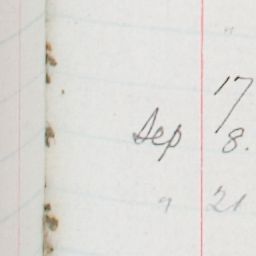 "
17
Sep 8.
" 21